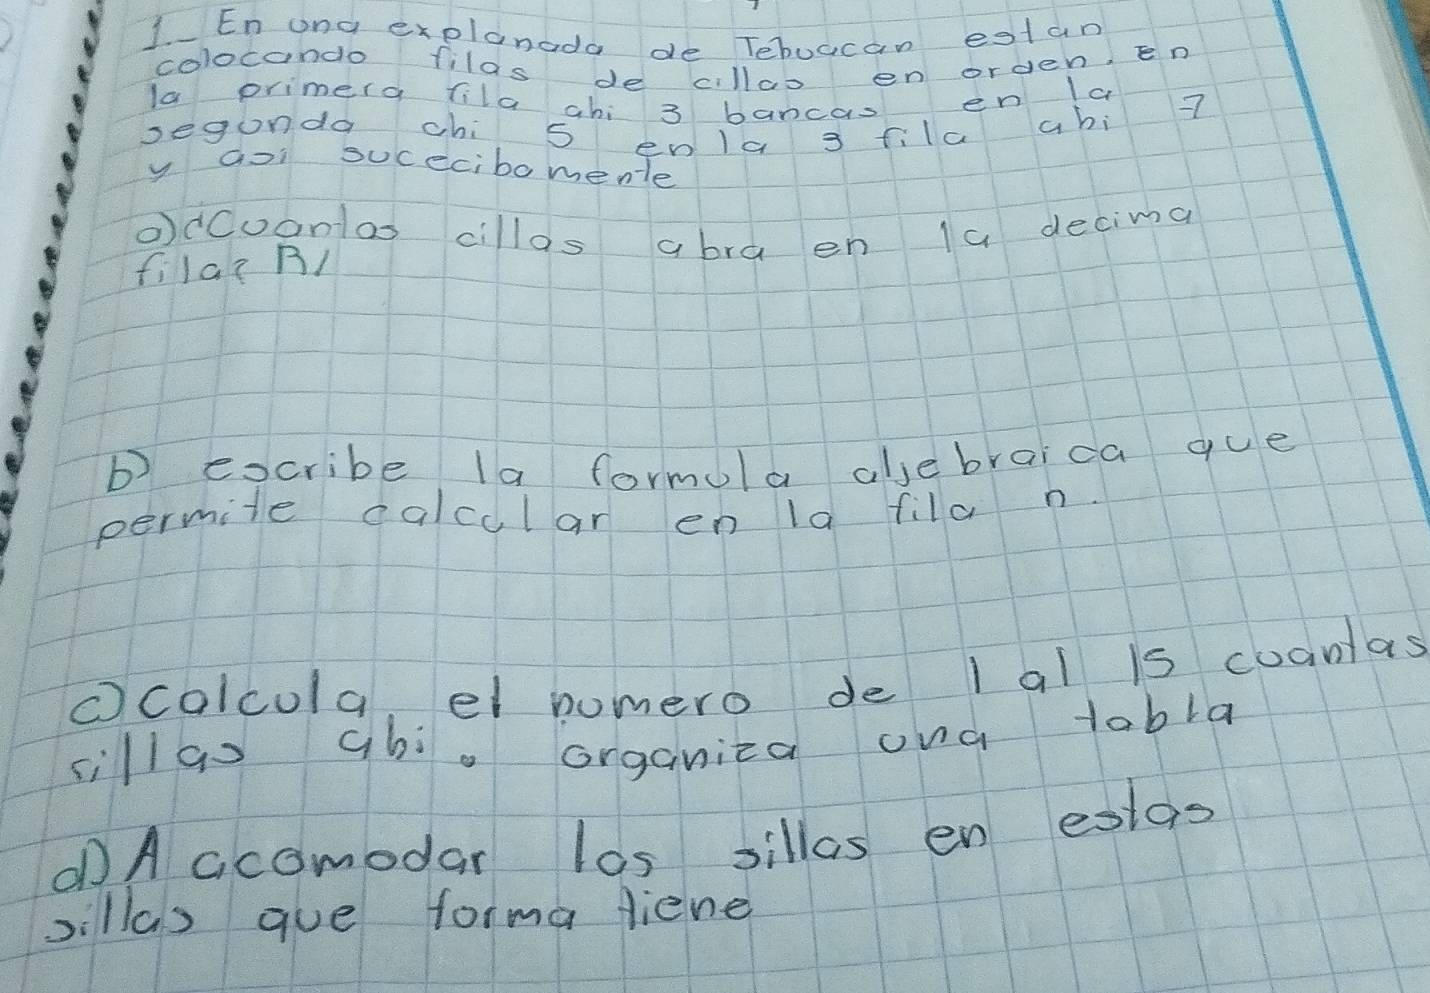 1.- En una explanada de Tehuacan estan
colocando filas de cillas en orden. en
la primera fila ahi 3 bancas en la
segunda ahi 5 en la 3 fila ahi 7
y asi sucecibamente
a) ¿Cuantas cillas abra en la decima
fila? R/
b) escribe la formula aljebraica que
permite calcular en la fila n.
c) calcula el numero de 1 al 15 cuantas
sillas ahi. organiza una tabla
d) A acomodar las sillas en estas
sillas que forma tiene